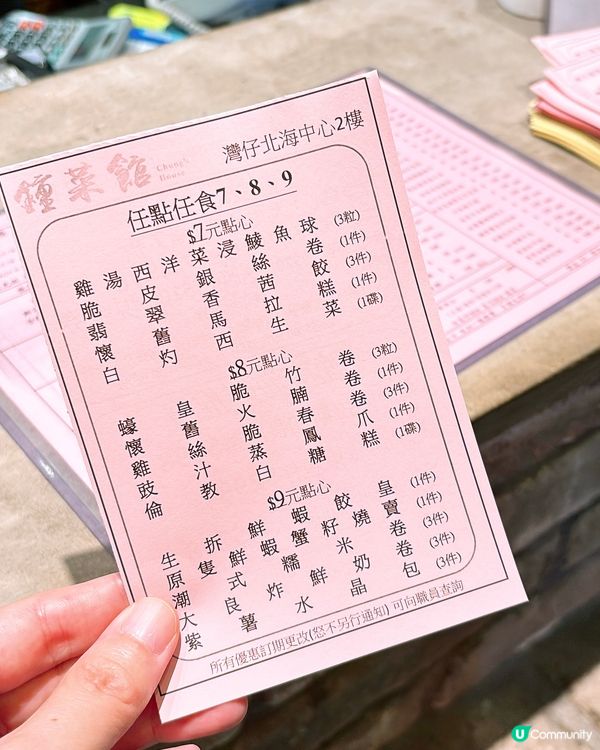 鐘菜館
Chung's
House
灣仔北海中心2樓
任點任食7、8、9
$7元點心
雞湯西洋菜浸鯪魚球 (3粒)
脆皮銀絲卷 (1件)
翡翠香茜餃 (3件)
懷舊馬拉糕 (1件)
白灼西生菜 (1碟)
$8元點心
蠔皇脆竹卷 (3粒)
懷舊火腩卷 (1件)
雞絲脆春卷 (3件)
豉汁蒸鳳爪 (1件)
倫教白糖糕 (1碟)
$9元點心
生拆鮮蝦餃皇 (1件)
原隻鮮蟹籽燒賣 (1件)
潮式蝦糯米卷 (3件)
大良炸鮮奶卷 (3件)
紫薯水晶包 (3件)
所有優惠訂期更改(怒不另行通知) 可向職員查詢
U Community